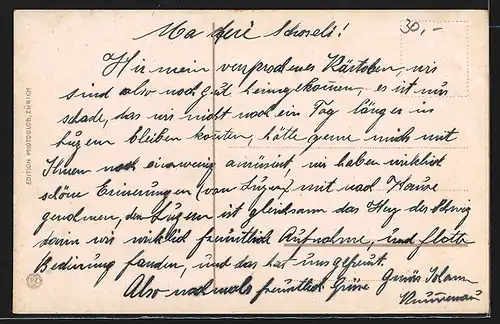 30,-
Ma chérè Schoseli!
Hir mein versprochenes Kärtchen, wir
sind also noch gut heimgekommen, es ist nur
schade, das wir nicht noch ein Tag länger in
Luzern bleiben konnten, hätte gerne mich mit
Ihnen noch ein wenig amüsiert, wir haben wirklich
schöne Erinerungen (von Luzern) mit nach Hause
genohmen, den Luzern ist gleichsam das Herz der Schweiz
darin wir wirklich freuntlich Aufnahme, und flotte
Bedienung fanden, und das hat uns gefreut.
Also nochmals freuntlich Grüsse
Johann
EDITION PHOTOGLOB, ZÜRICH